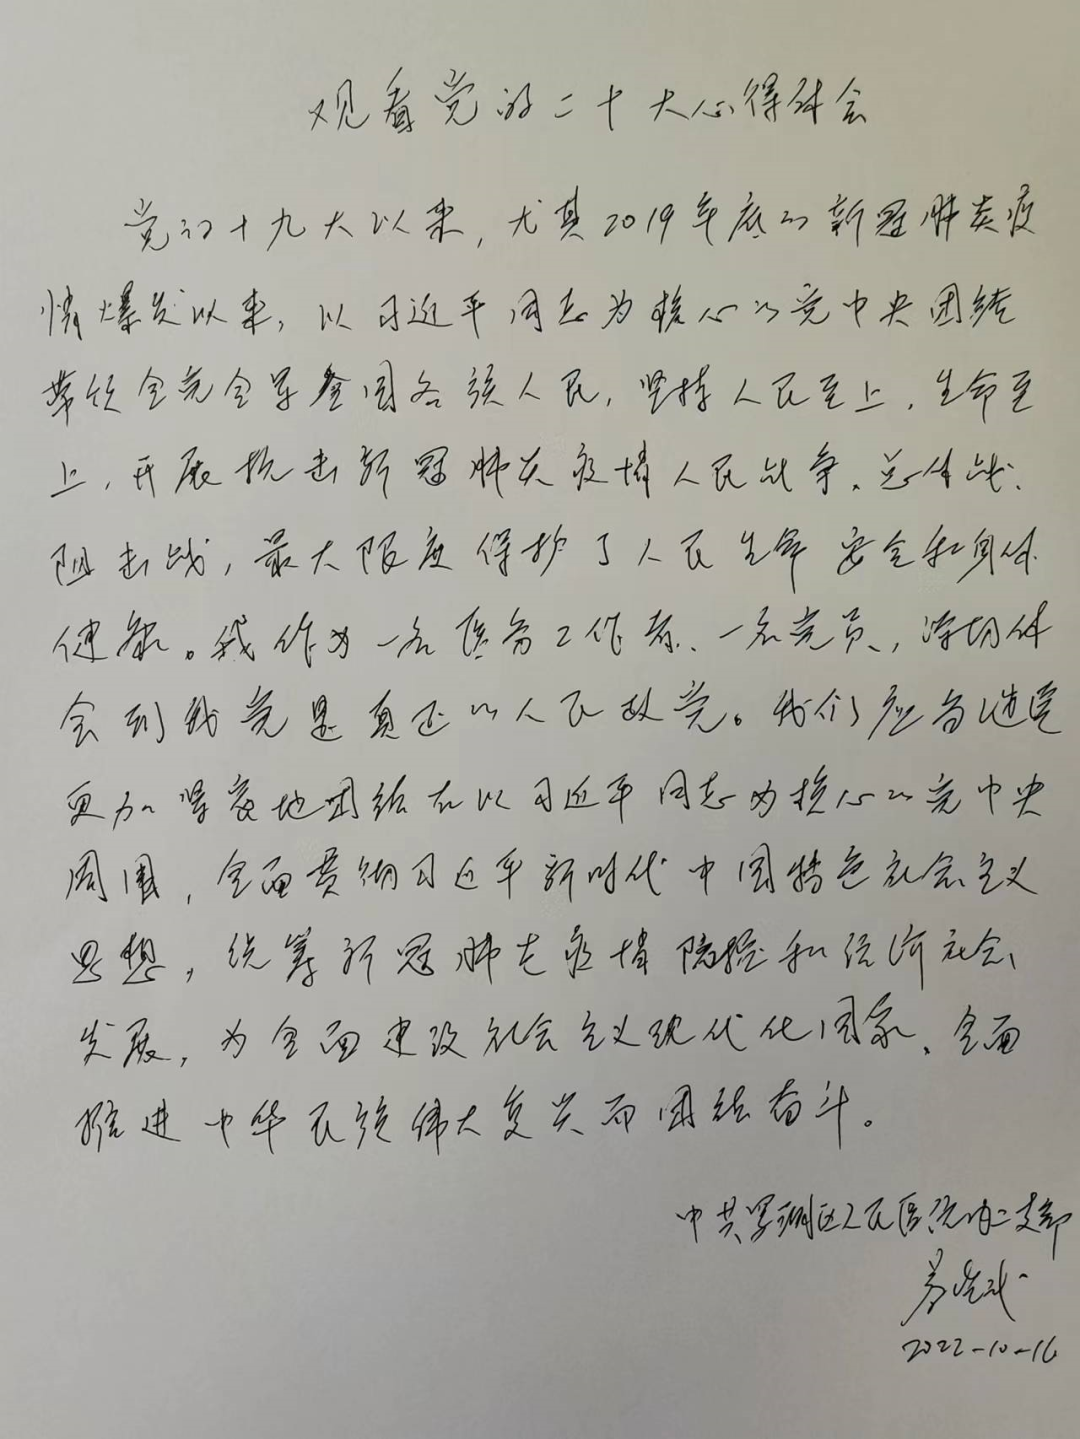 观看党的二十大心得体会
党的十九大以来，尤其2019年底的新冠肺炎疫
情爆发以来，以习近平同志为核心的党中央团结
带领全党全军全国各族人民，坚持人民至上，生命至
上，开展抗击新冠肺炎疫情人民战争、总体战、
阻击战，最大限度保护了人民生命安全和身体
健康。我作为一名医务工作者、一名党员，深切体
会到我党是真正的人民政党。我们应当
更加紧密地团结在以习近平同志为核心的党中央
周围，全面贯彻习近平新时代中国特色社会主义
思想，统筹新冠肺炎疫情防控和经济社会
发展，为全面建设社会主义现代化国家、全面
推进中华民族伟大复兴而团结奋斗。
中共 区人民医院内二支部
2022-10-16